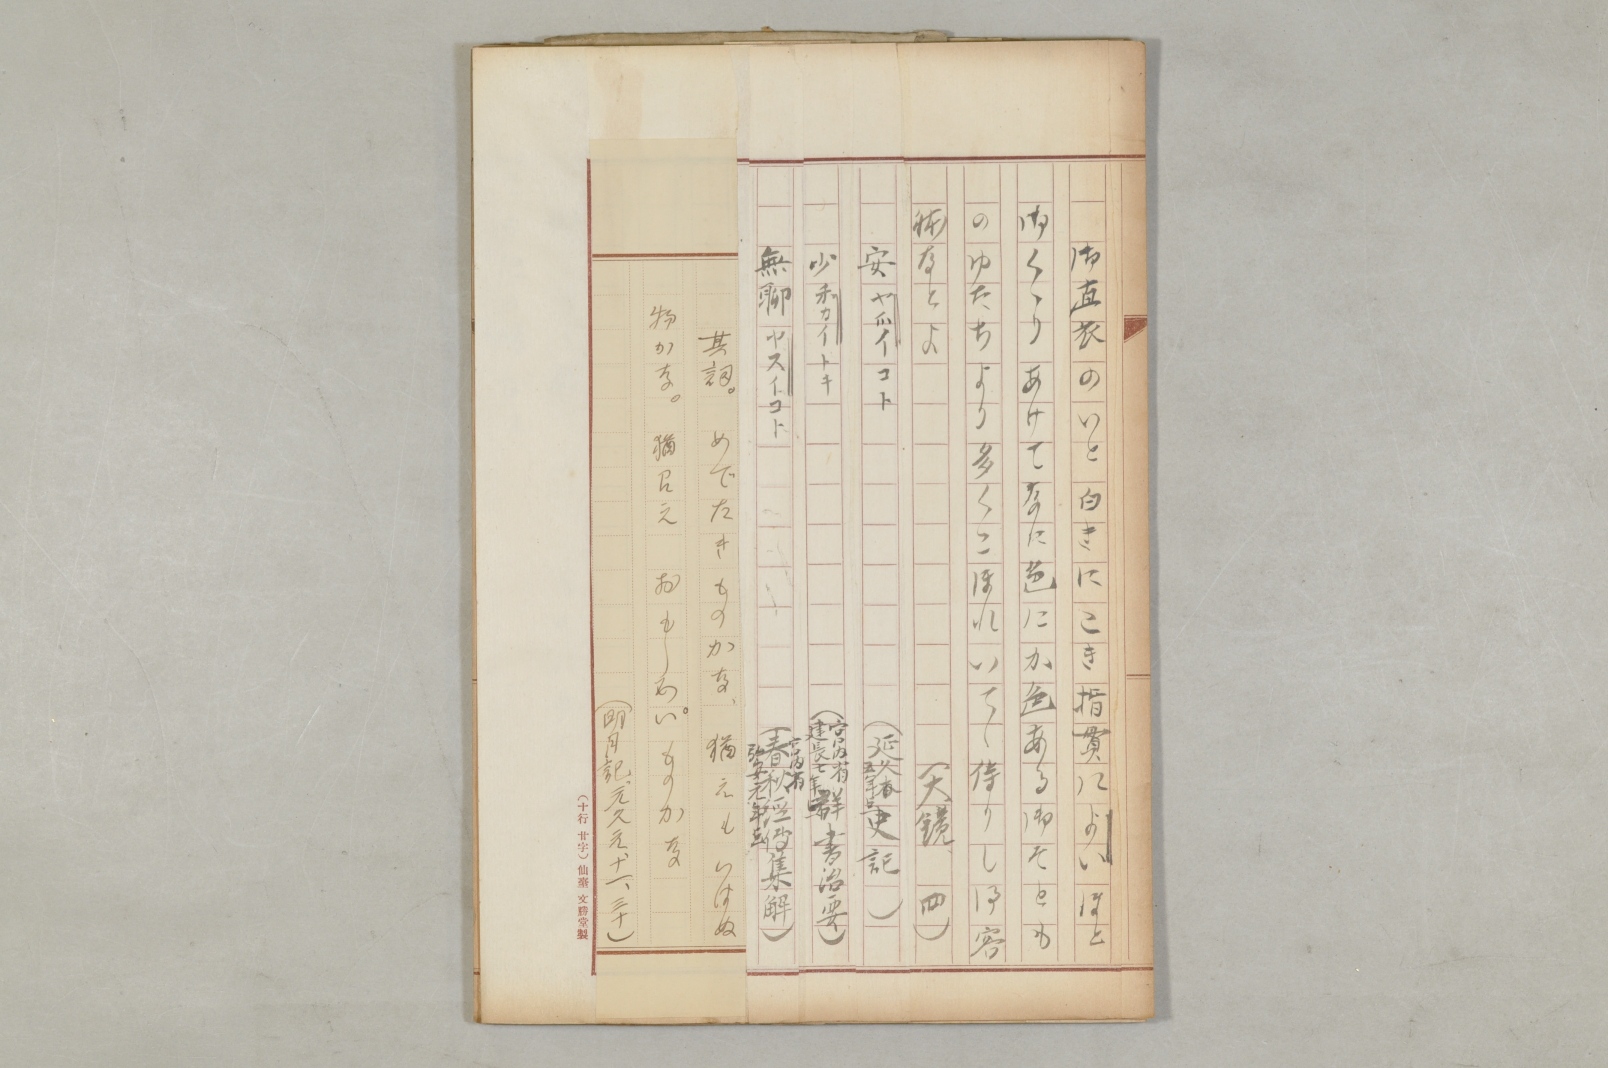 御直衣のいと白きにこき指貫によいほと
御くゝりあけてなに色にか色ある御そとも
のゆたちより多くこほれいてゝ侍りし御容
躰なとよ　（大鏡　四）
安ヤ爪イコト　（延久五年点史記）
少利カイトキ　（宮内省建長七年点群書治要）
無聊ヤスイコト　（宮内省弘安元年点春秋経傳集解）
其詞。めでたきものかな、猶えもいはぬ
物かな。猶召えおもしろい。ものかな
（明月記、元久元、十一、三十）
（十行廿字）仙臺 文勝堂製